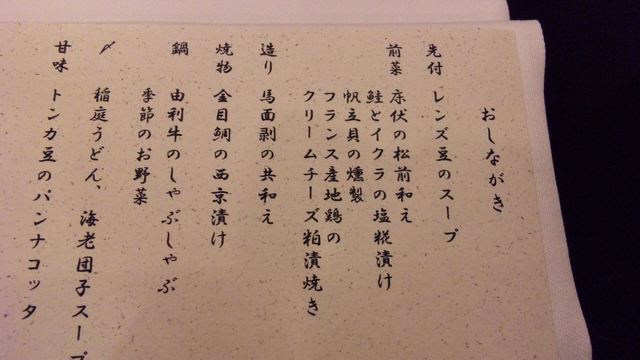 おしながき
先付 レンズ豆のスープ
前菜 床伏の松前和え
鮭とイクラの塩糀漬け
帆立貝の燻製
フランス産地鶏の
クリームチーズ粕漬焼き
造り 馬面剥の共和え
焼物 金目鯛の西京漬け
鍋 由利牛のしゃぶしゃぶ
季節のお野菜
〆 稲庭うどん、海老団子スープ
甘味 トンカ豆のパンナコッタ